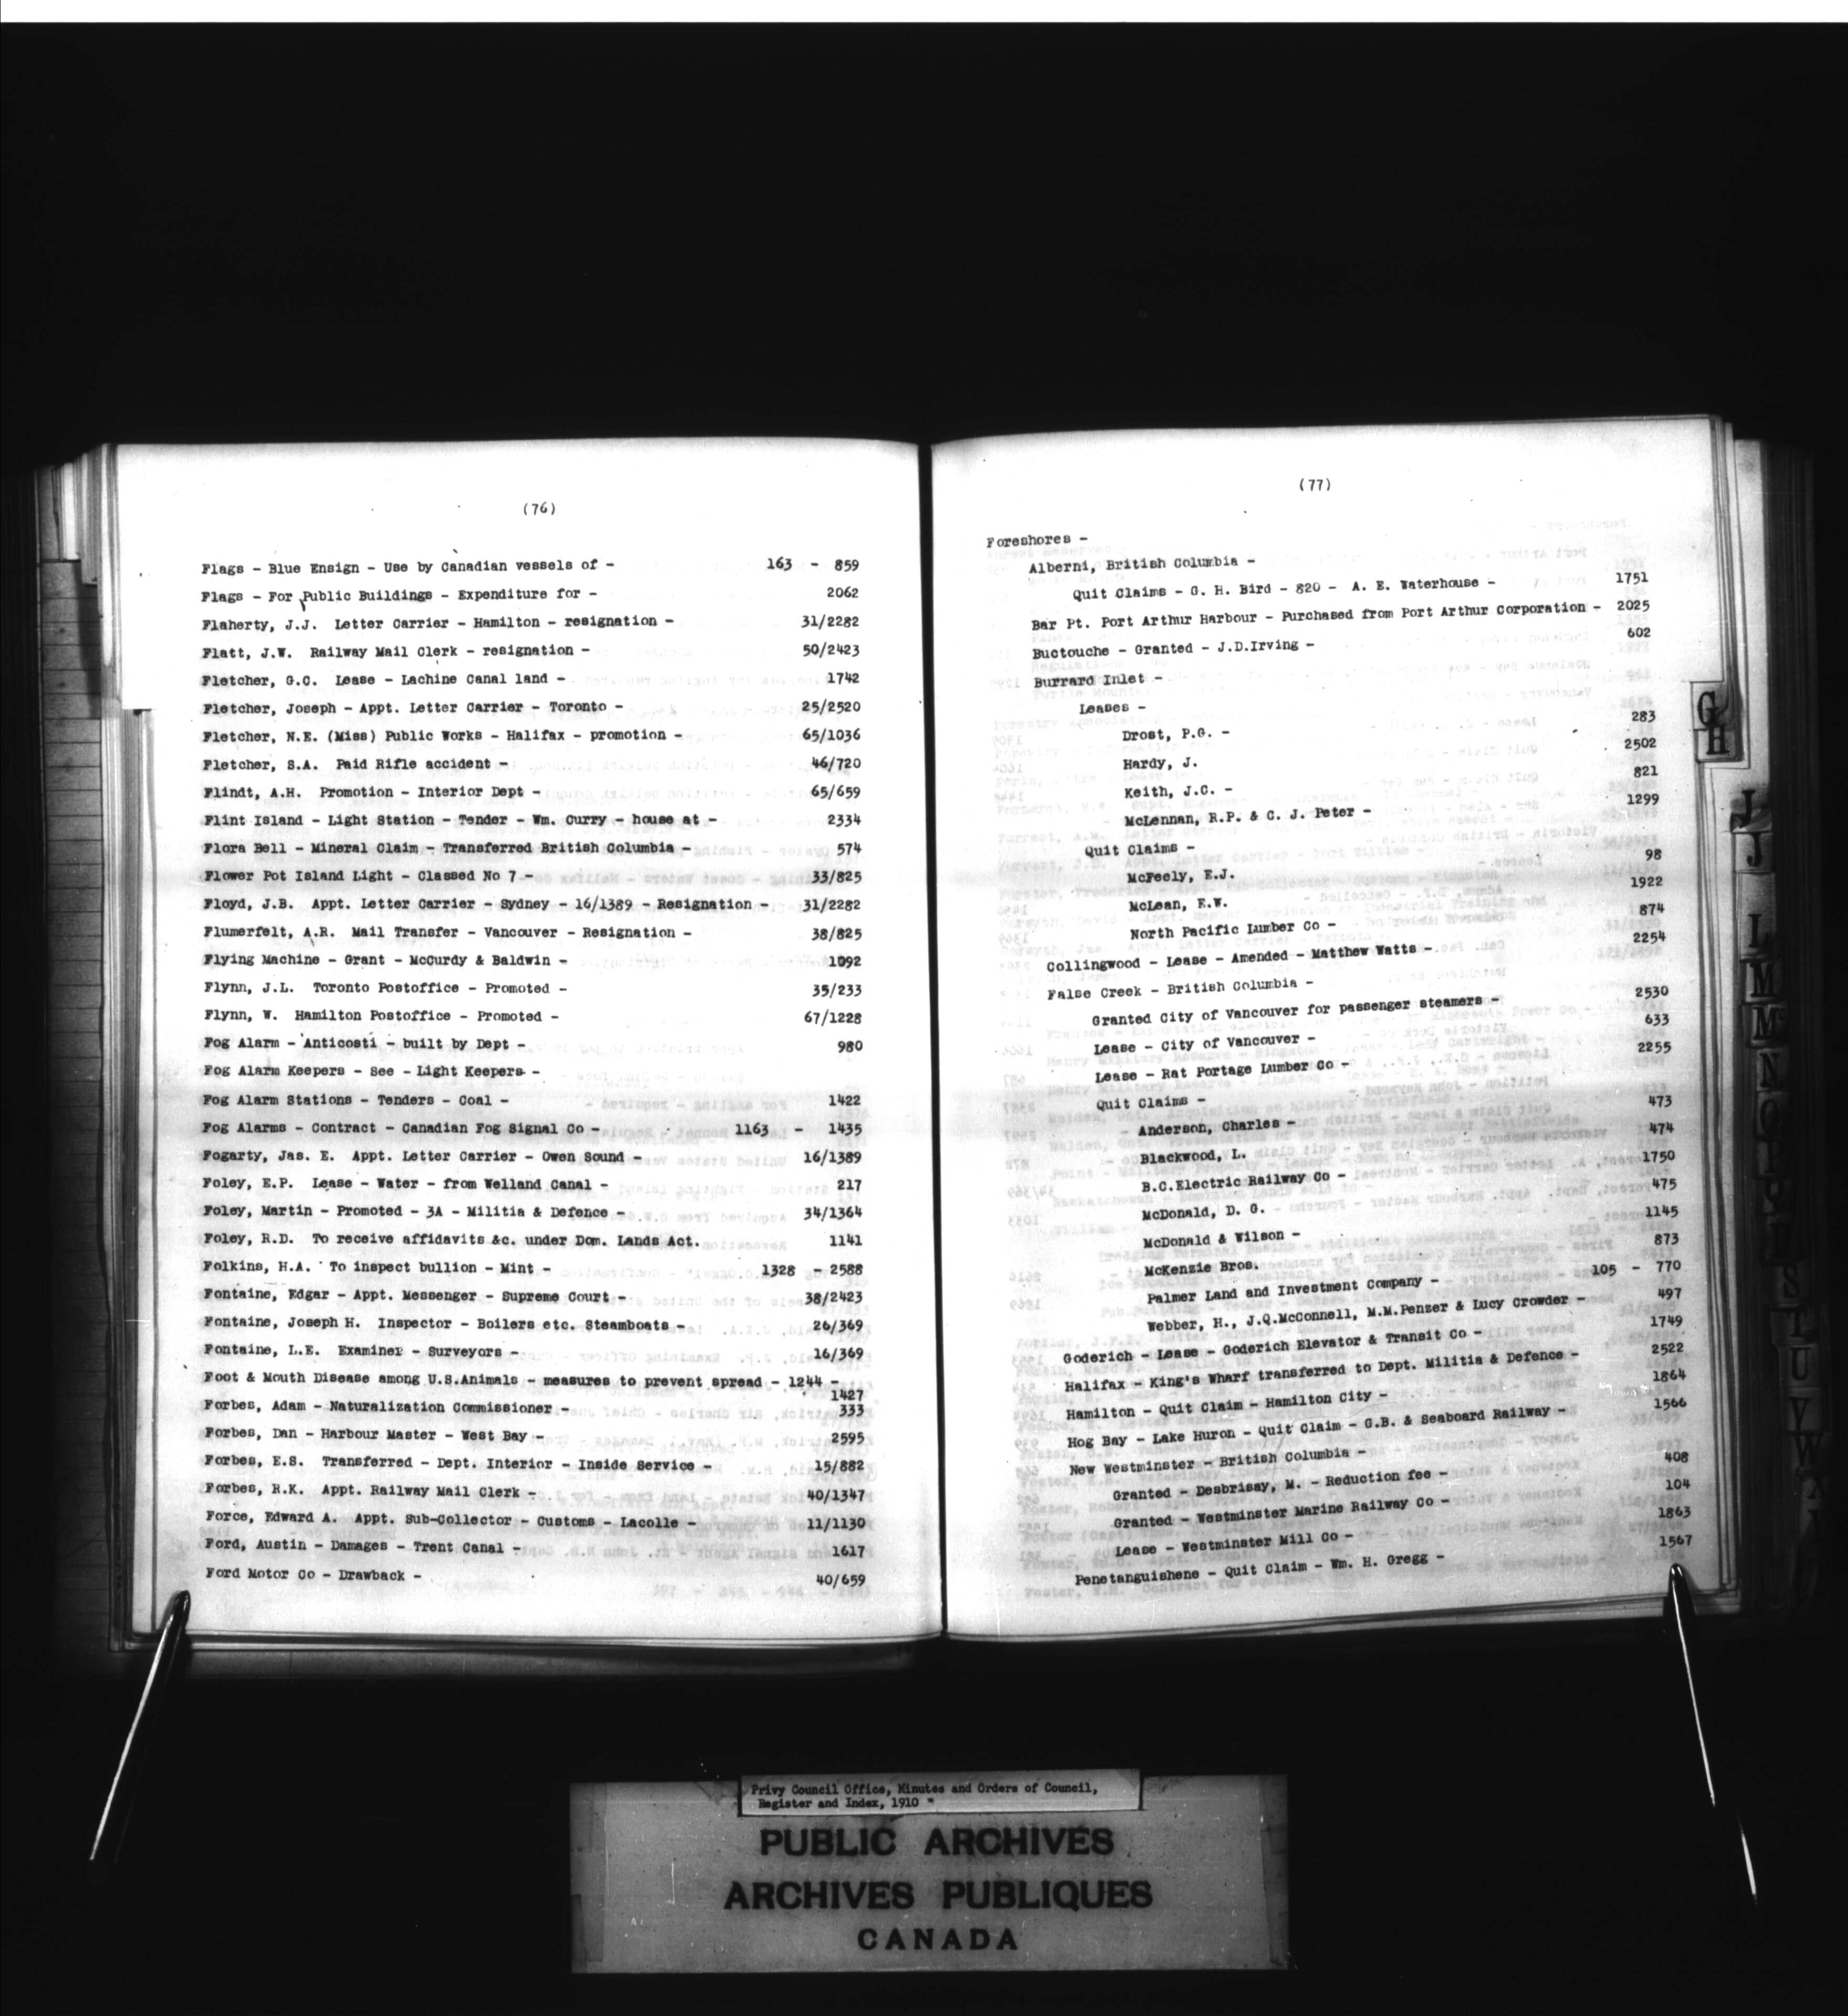 (76)
Flags - Blue Ensign - Use by Canadian vessels of - 163 - 859
Flags - For Public Buildings - Expenditure for - 2062
Flaherty, J.J. Letter Carrier - Hamilton - resignation - 31/2282
Flatt, J.W. Railway Mail Clerk - resignation - 50/2423
Fletcher, G.C. Lease - Lachine Canal land - 1742
Fletcher, Joseph - Appt. Letter Carrier - Toronto - 25/2520
Fletcher, N.E. (Miss) Public Works - Halifax - promotion - 65/1036
Fletcher, S.A. Paid Rifle accident - 46/720
Flindt, A.H. Promotion - Interior Dept - 65/659
Flint Island - Light Station - Tender - Wm. Curry - house at - 2334
Flora Bell - Mineral Claim - Transferred British Columbia - 574
Flower Pot Island Light - Classed No 7 - 33/825
Floyd, J.B. Appt. Letter Carrier - Sydney - 16/1389 - Resignation - 31/2282
Flumerfelt, A.R. Mail Transfer - Vancouver - Resignation - 38/825
Flying Machine - Grant - McCurdy & Baldwin - 1092
Flynn, J.L. Toronto Postoffice - Promoted - 35/233
Flynn, W. Hamilton Postoffice - Promoted - 67/1228
Fog Alarm - Anticosti - built by Dept - 980
Fog Alarm Keepers - See - Light Keepers -
Fog Alarm Stations - Tenders - Coal - 1422
Fog Alarms - Contract - Canadian Fog Signal Co - 1163 - 1435
Fogarty, Jas. E. Appt. Letter Carrier - Owen Sound - 16/1389
Foley, E.P. Lease - Water - from Welland Canal - 217
Foley, Martin - Promoted - 3A - Militia & Defence - 34/1364
Foley, R.D. To receive affidavits &c. under Dom. Lands Act. 1141
Folkins, H.A. To inspect bullion - Mint - 1328 - 2588
Fontaine, Edgar - Appt. Messenger - Supreme Court - 38/2423
Fontaine, Joseph H. Inspector - Boilers etc. Steamboats - 26/369
Fontaine, L.E. Examiner - Surveyors - 16/369
Foot & Mouth Disease among U.S.Animals - measures to prevent spread - 1244 -
1427
Forbes, Adam - Naturalization Commissioner - 333
Forbes, Dan - Harbour Master - West Bay - 2595
Forbes, E.S. Transferred - Dept. Interior - Inside Service - 15/882
Forbes, R.K. Appt. Railway Mail Clerk - 40/1347
Force, Edward A. Appt. Sub-Collector - Customs - Lacolle - 11/1130
Ford, Austin - Damages - Trent Canal - 1617
Ford Motor Co - Drawback - 40/659
(77)
Foreshores -
Alberni, British Columbia -
Quit Claims - G. H. Bird - 820 - A. E. Waterhouse - 1751
Bar Pt. Port Arthur Harbour - Purchased from Port Arthur Corporation - 2025
Buctouche - Granted - J.D.Irving - 602
Burrard Inlet -
Leases -
Drost, P.G. - 283
Hardy, J. 2502
Keith, J.C. - 821
McLennan, R.P. & C. J. Peter - 1299
Quit Claims -
McFeely, E.J. 98
McLean, E.W. 1922
North Pacific Lumber Co - 874
Collingwood - Lease - Amended - Matthew Watts - 2254
False Creek - British Columbia -
Granted City of Vancouver for passenger steamers - 2530
Lease - City of Vancouver - 633
Lease - Rat Portage Lumber Co - 2255
Quit Claims -
Anderson, Charles - 473
Blackwood, L. 474
B.C.Electric Railway Co - 1750
McDonald, D. G. 475
McDonald & Wilson - 1145
McKenzie Bros. 873
Palmer Land and Investment Company - 105 - 770
Webber, H., J.Q.McConnell, M.M.Penzer & Lucy Crowder - 497
Goderich - Lease - Goderich Elevator & Transit Co - 1749
Halifax - King's Wharf transferred to Dept. Militia & Defence - 2522
Hamilton - Quit Claim - Hamilton City - 1864
Hog Bay - Lake Huron - Quit Claim - G.B. & Seaboard Railway - 1566
New Westminster - British Columbia -
Granted - Desbrisay, M. - Reduction fee - 408
Granted - Westminster Marine Railway Co - 104
Lease - Westminster Mill Co - 1863
Penetanguishene - Quit Claim - Wm. H. Gregg - 1567
G
H
J
L
M
M
N
S
T
U
V
W
Privy Council Office, Minutes and Orders of Council,
Register and Index, 1910
PUBLIC ARCHIVES
ARCHIVES PUBLIQUES
CANADA